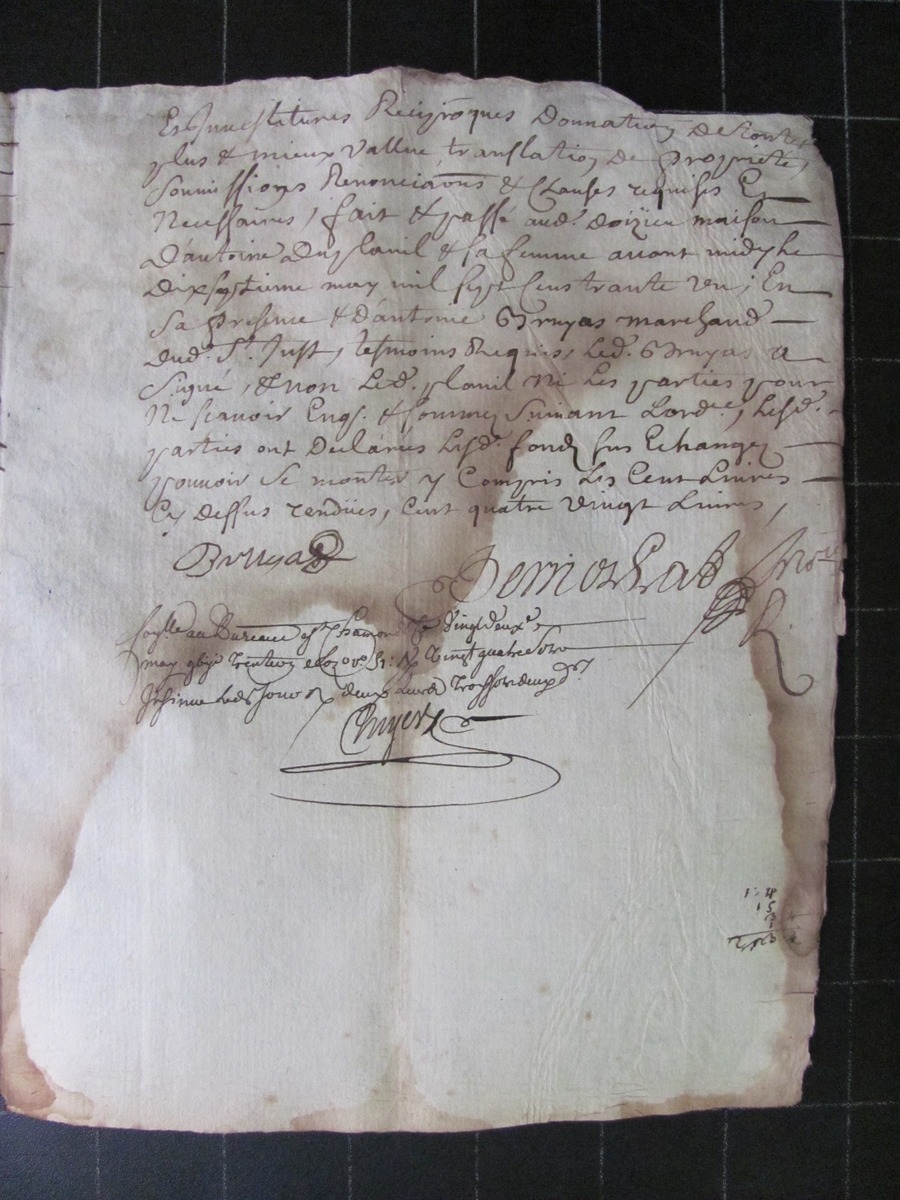 Et Jnvestitures Reciproques Donnation de toutes
plus & mieux vallue, translation de proprieté,
soumissions Renonciaons & Clauses requises Et
Necessaires, fait & passé aud. doizieu maison
D'antoine Du planil & sa femme avant midy le
Dixseptieme may mil sept Cens trante un ; En
sa presence & d'antoine Bruyas marchand
dud. St. Just, tesmoins Requis, Led. Bruyas a
signé, & non Led. planil Ni Les parties pour
Ne scavoir Enqs. & sommez suivant Lordce, Lesd.
parties ont Declarés Lesd. fonds sus Echangez
pouvoir se monter y Compris Les Cent Livres
Cy dessus rendües, Cent quatre vingt Livres,
Bruyas
not. R.
au Bureau de St Chamond Le vingt deuxe.
may trente un vingt quatre sols
deux livres
1: 4
1 5